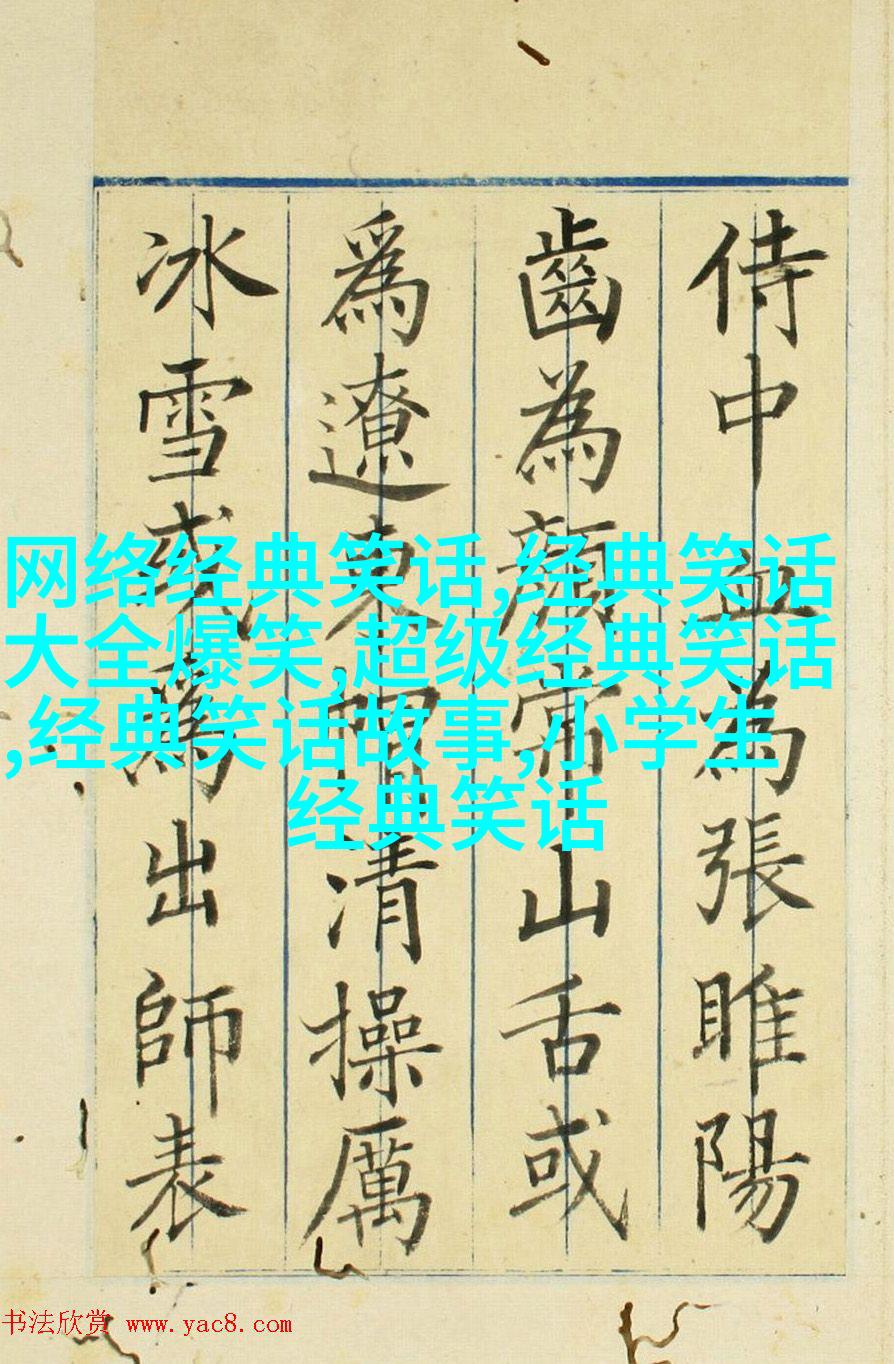 侍中血為張睢陽
齒為顔常山舌或
爲遼東帽清操厲
冰雪或爲出師表
网络经典笑话,经典笑话
大全爆笑,超级经典笑话
,经典笑话故事,小学生
经典笑话
书法欣赏 www.yac8.com